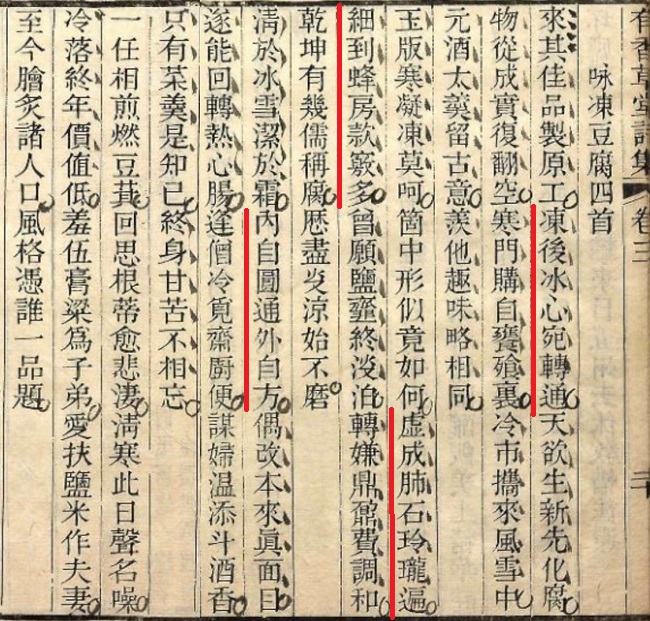 有香草堂詩集 卷三
咏凍豆腐四首
來其佳品製原工凍後冰心宛轉通天欲生新先化腐
物從成實復翻空寒門購自饔飧裏冷市攜來風雪中
元酒太羹留古意羨他趣味略相同
玉版寒凝凍莫呵箇中形似竟如何虛成肺石玲瓏遍
細到蜂房款竅多曾願鹽虀終淡泊轉嫌鼎鼐費調和
乾坤有幾儒稱腐歷盡炎涼始不磨
清於冰雪潔於霜內自圓通外自方偶改本來眞面目
遂能回轉熱心腸逢僧冷覓齋厨便謀婦温添斗酒香
只有菜羹是知己終身甘苦不相忘
一任相煎燃豆萁回思根蒂愈悲淒淸寒此日聲名噪
冷落終年價值低羞伍膏粱爲子弟愛扶鹽米作夫妻
至今膾炙諸人口風格憑誰一品題